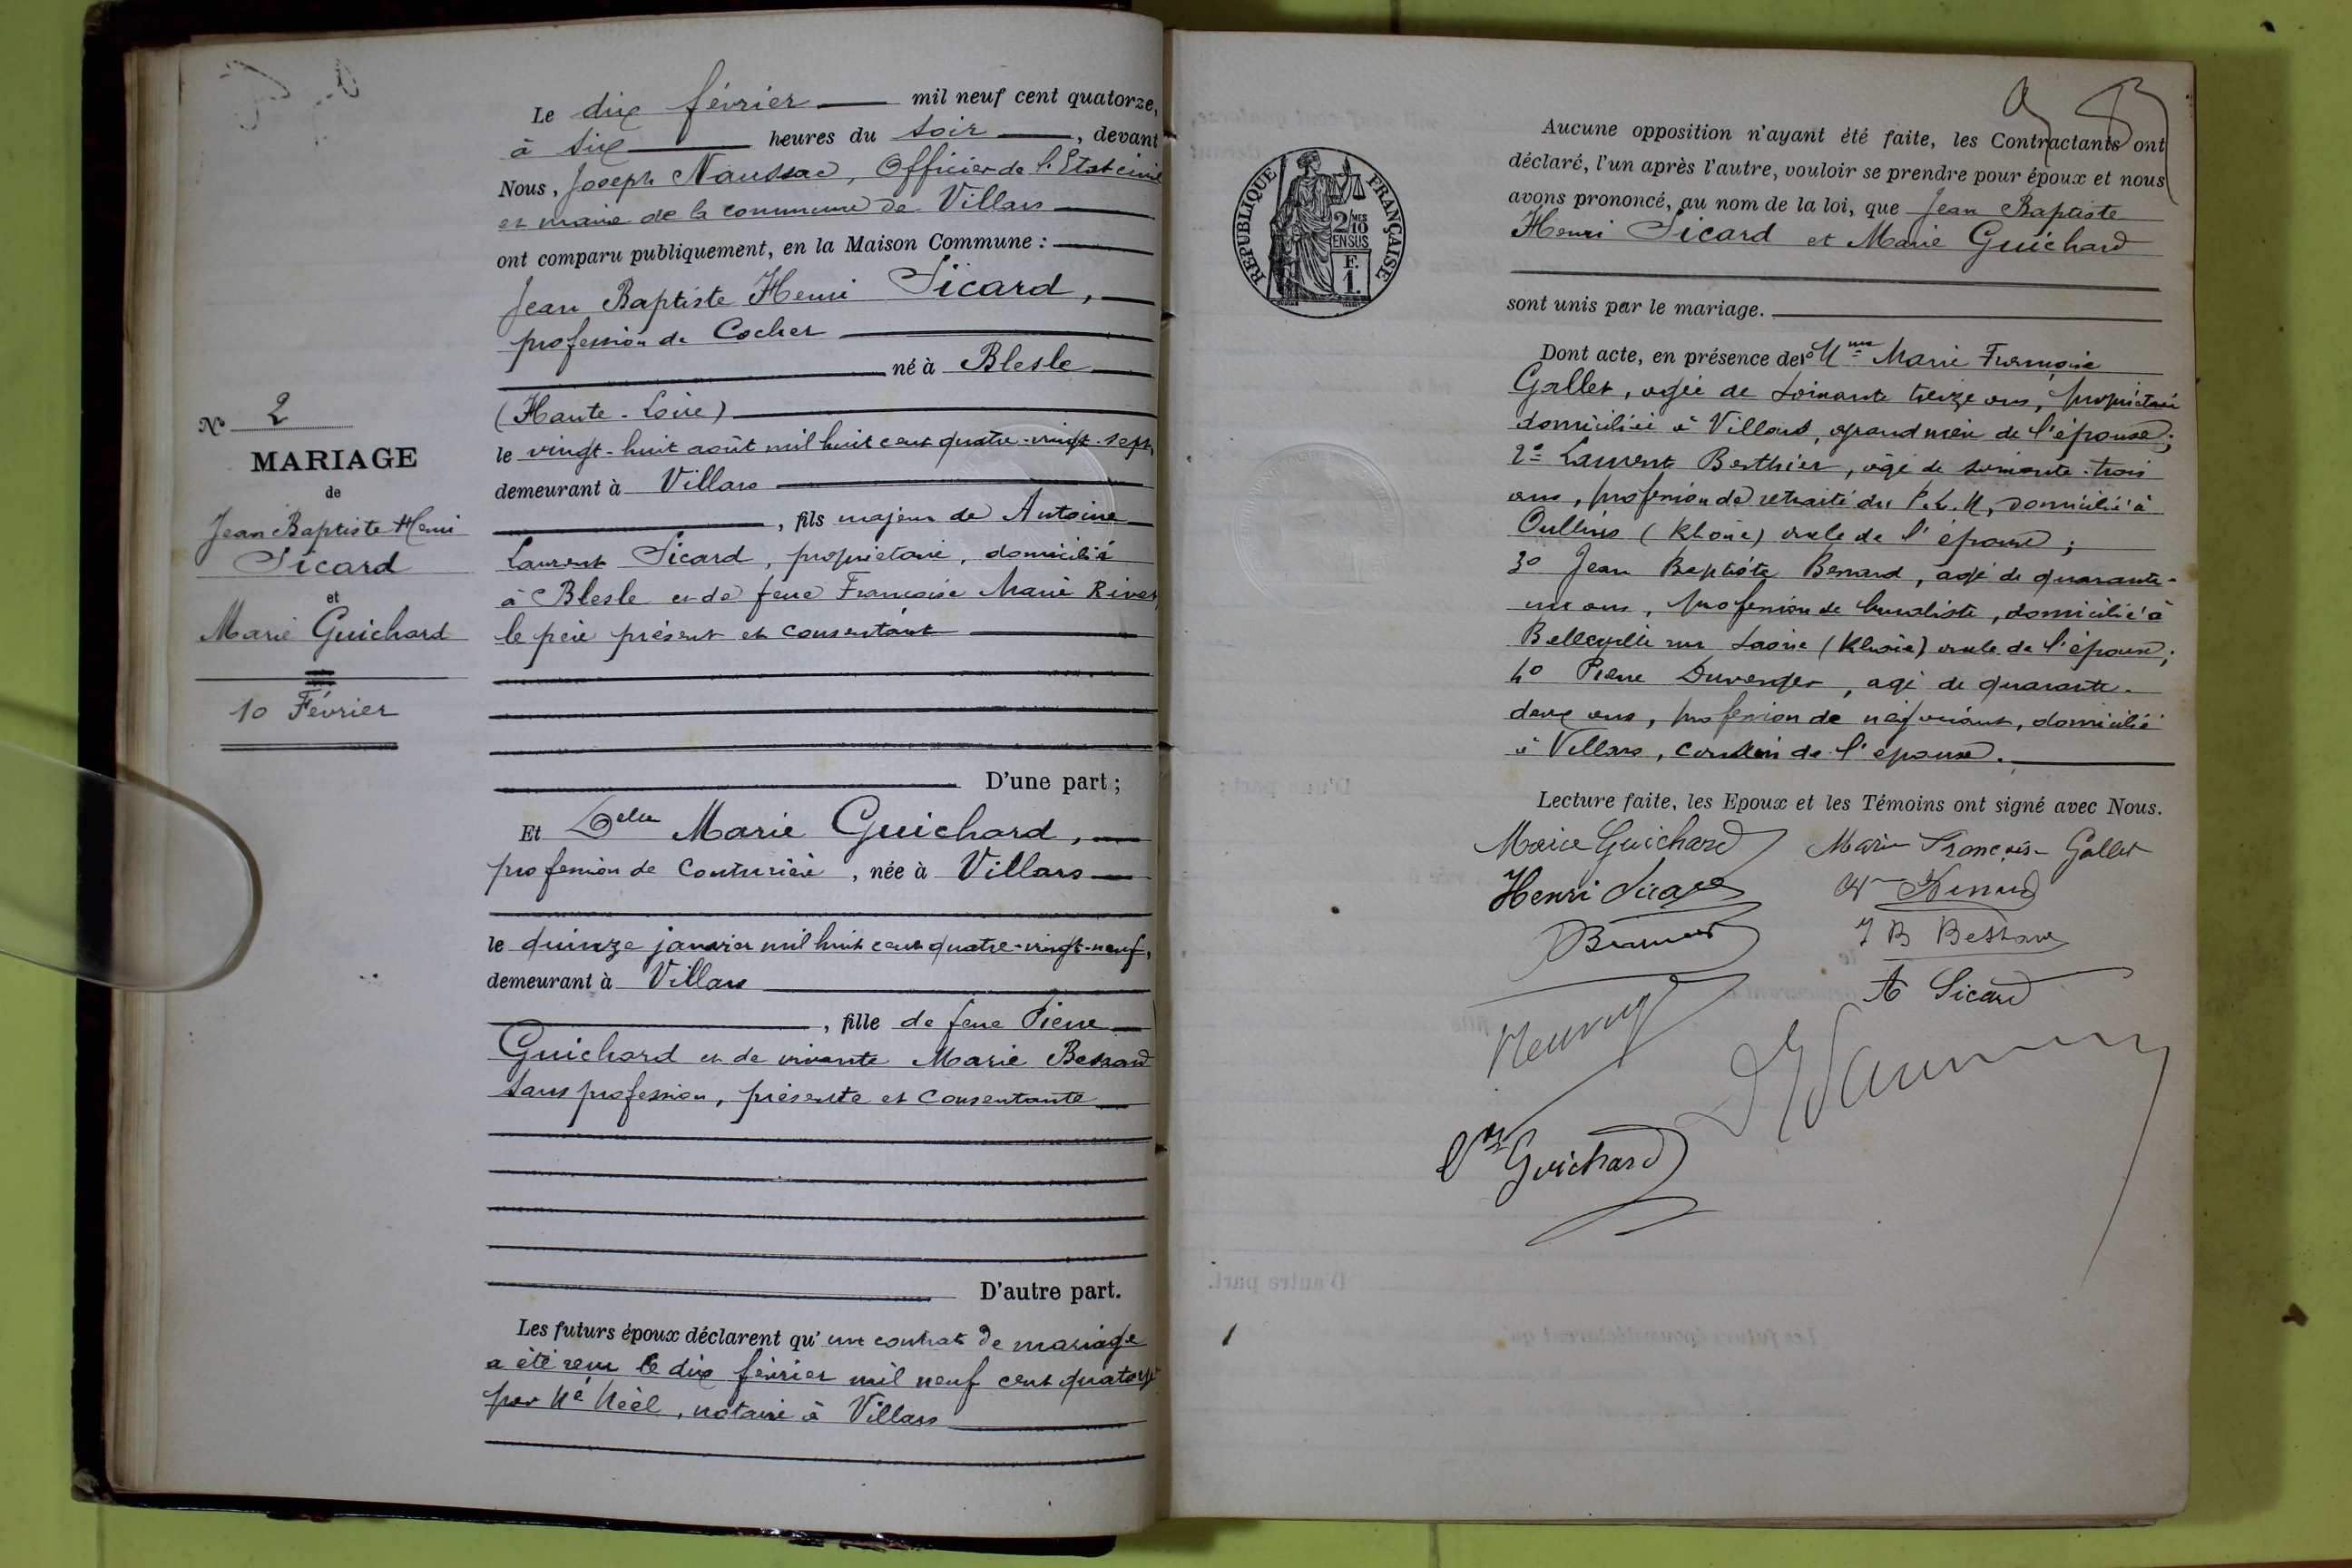 N° 2
MARIAGE
de
Jean Baptiste Henri
Sicard
et
Marie Guichard
10 Février
Le dix février mil neuf cent quatorze,
à six heures du soir, devant
Nous, Joseph Naussac, Officier de l'Etat civil
et maire de la commune de Villars
ont comparu publiquement, en la Maison Commune :
Jean Baptiste Henri Sicard,
profession de Cocher
né à Blesle
(Haute-Loire)
le vingt-huit août mil huit cent quatre-vingt-sept,
demeurant à Villars
, fils majeur de Antoine
Laurent Sicard, propriétaire, domicilié
à Blesle et de feue Françoise Marie Rivet
le père présent et consentant
D'une part ;
Et Delle Marie Guichard,
profession de Couturière, née à Villars
le quinze janvier mil huit cent quatre-vingt-neuf,
demeurant à Villars
, fille de feue Pierre
Guichard et de vivante Marie Bessard
sans profession, présente et consentante
D'autre part.
Les futurs époux déclarent qu'un contrat de mariage
a été reçu le dix février mil neuf cent quatorze
par Me Néel, notaire à Villars
REPUBLIQUE FRANÇAISE
2/10
EN SUS
F.
1.
Aucune opposition n'ayant été faite, les Contractants ont
déclaré, l'un après l'autre, vouloir se prendre pour époux et nous
avons prononcé, au nom de la loi, que Jean Baptiste
Henri Sicard et Marie Guichard
sont unis par le mariage.
Dont acte, en présence de 1° Mme Marie Françoise
Gallet, agée de soixante treize ans, propriétaire
domiciliée à Villars, grand mère de l'épouse ;
2° Laurent Berthier, âgé de soixante-trois
ans, profession de retraité du P.L.M, domicilié à
Oullins (Rhône) oncle de l'épouse ;
3° Jean Baptiste Bessard, agé de quarante-
un ans, profession de buraliste, domicilié à
Belleville sur Saône (Rhône) oncle de l'épouse ;
4° Pierre Duverger, agé de quarante-
deux ans, profession de négociant, domicilié
à Villars, cousin de l'épouse.
Lecture faite, les Epoux et les Témoins ont signé avec Nous.
Marie Guichard Marie Françoise Gallet
Henri Sicard
J B Bessard
A Sicard
Vve Guichard